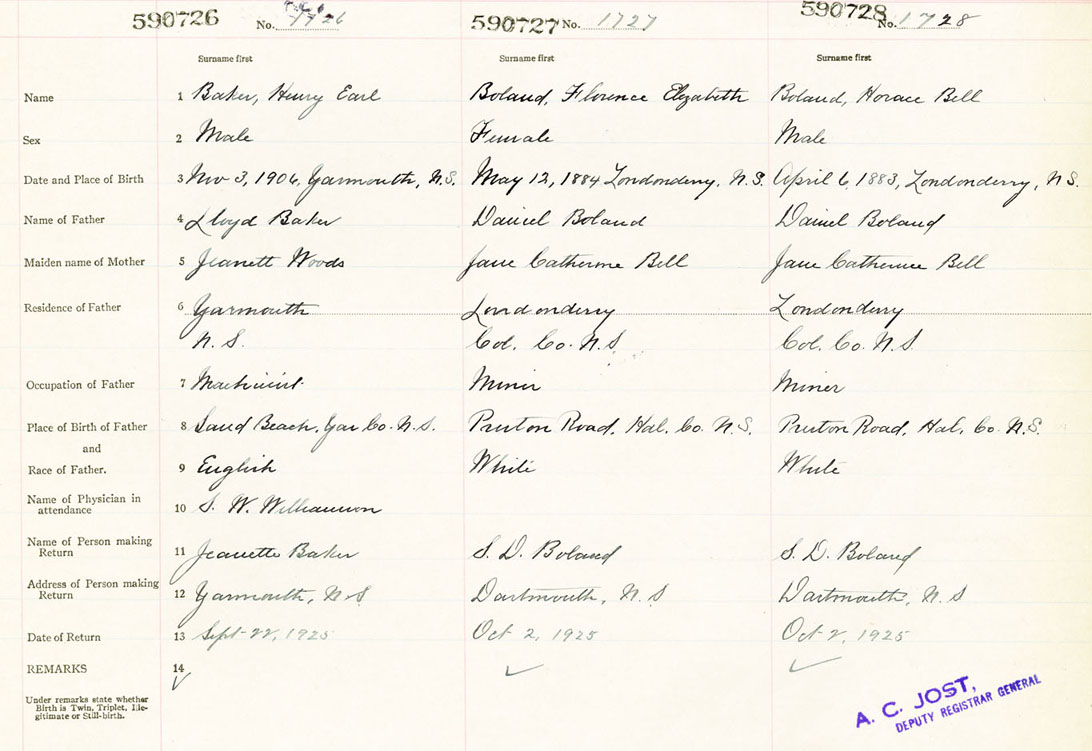 590726 No. 1726 590727 No. 1727 590728 No. 1728
Surname first Surname first Surname first
Name 1 Baker, Henry Earl Boland, Florence Elizabeth Boland, Horace Bell
Sex 2 Male Female Male
Date and Place of Birth 3 Nov 3, 1906, Yarmouth, N.S. May 12, 1884 Londonderry, N.S. April 6, 1883, Londonderry, N.S.
Name of Father 4 Lloyd Baker Daniel Boland Daniel Boland
Maiden name of Mother 5 Jeanett Woods Jane Catherine Bell Jane Catherine Bell
Residence of Father 6 Yarmouth Londonderry Londonderry
N.S. Col. Co. N.S Col. Co. N.S.
Occupation of Father 7 Machinist. Miner Miner
Place of Birth of Father 8 Sand Beach, Yar Co. N.S. Preston Road, Hal. Co. N.S. Preston Road, Hal. Co. N.S.
and
Race of Father. 9 English White White
Name of Physician in
attendance 10 S. W. Williamson
Name of Person making
Return 11 Jeanette Baker S. D. Boland S. D. Boland
Address of Person making
Return 12 Yarmouth, N.S Dartmouth, N.S Dartmouth, N.S
Date of Return 13 Sept 22, 1925 Oct 2, 1925 Oct 2, 1925
REMARKS 14
Under remarks state whether
Birth is Twin, Triplet, Ille-
gitimate or Still-birth.
A. C. JOST,
DEPUTY REGISTRAR GENERAL